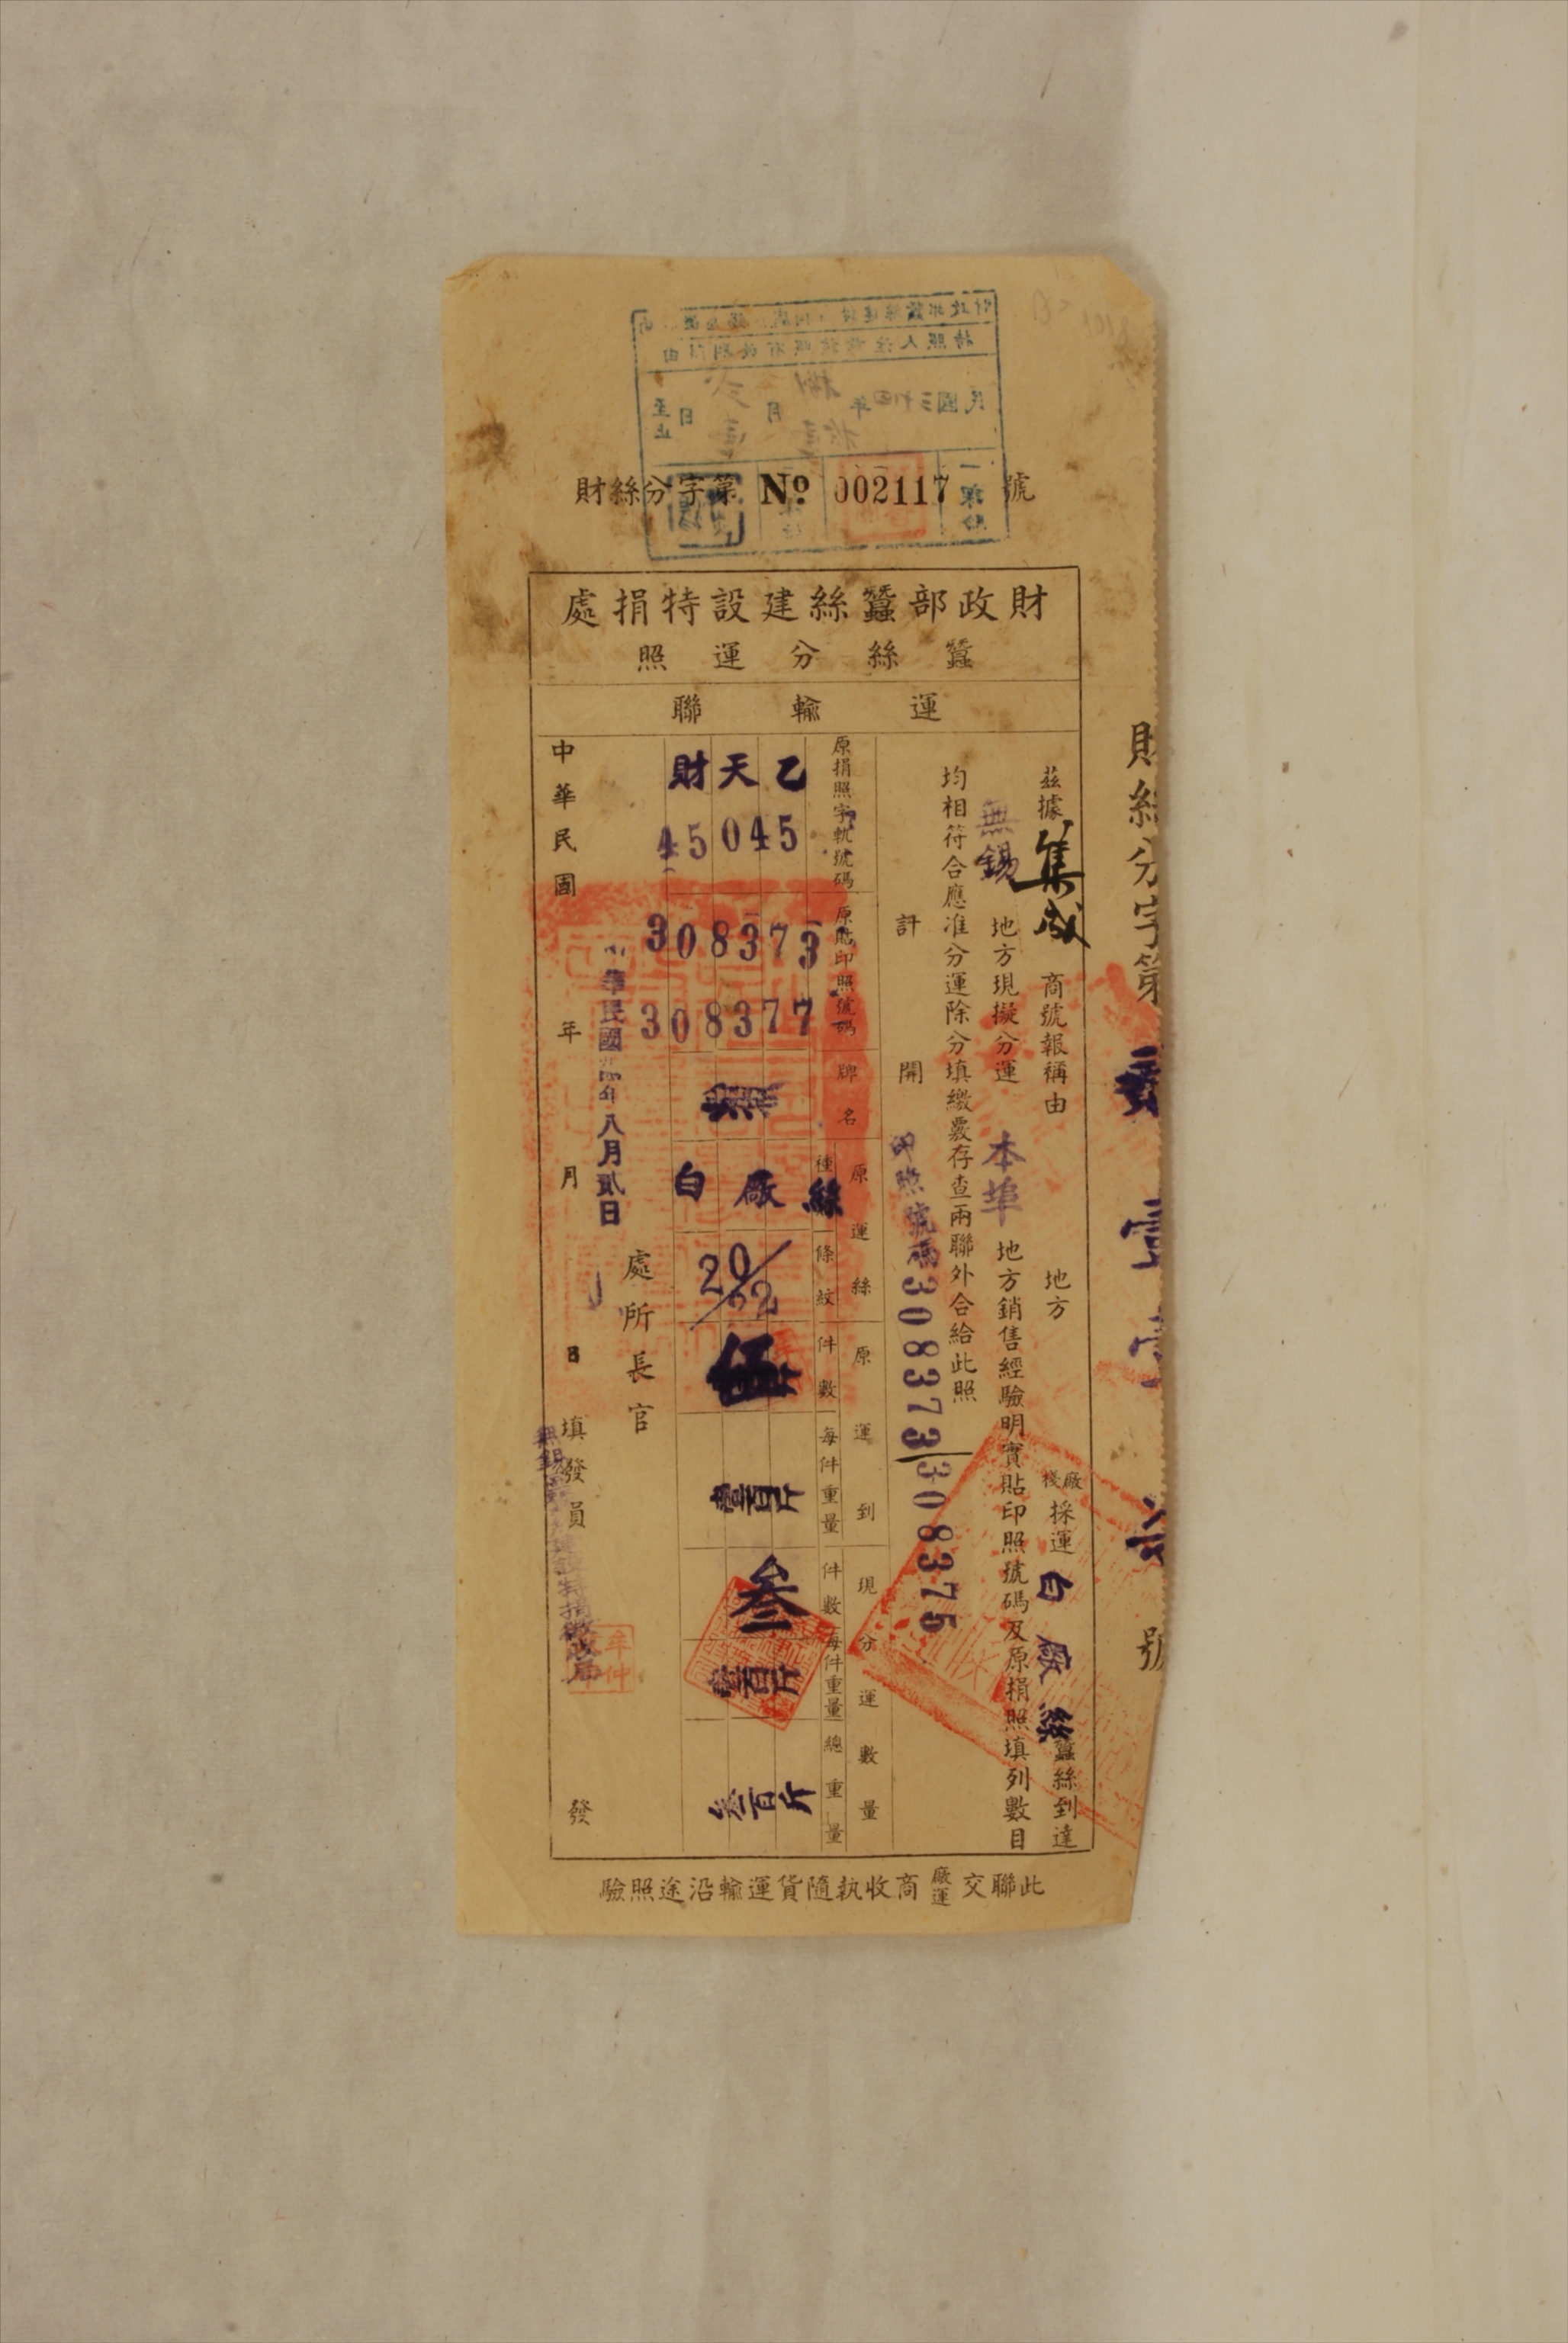 財絲分字第 No 002117 號
財政部蠶絲建設特捐處
蠶絲分運照
運輸聯
茲據集成商號報稱由地方廠棧採運白廠絲蠶絲到達
無錫地方現擬分運本埠地方銷售經驗明實貼印照號碼及原捐照填列數目
均相符合應准分運除分填繳覈存查兩聯外合給此照
計開
印照號碼308373/308375
原捐照字軌號碼
財天乙
45045
原貼印照號碼
308373
308377
牌名
原運絲
種
白廠絲
條紋
20/22
原運到
件數
伍
每件重量
壹百斤
現分運數量
件數
叁
每件重量
壹百斤
總重量
叁百斤
處所長官
中華民國 年 月 日 填發員 發
華民國 年八月貳日
無錫 建設特捐徵收局
財絲分字第 號
此聯交廠運商收執隨貨運輸沿途照驗
民國三十四年 月 日至止